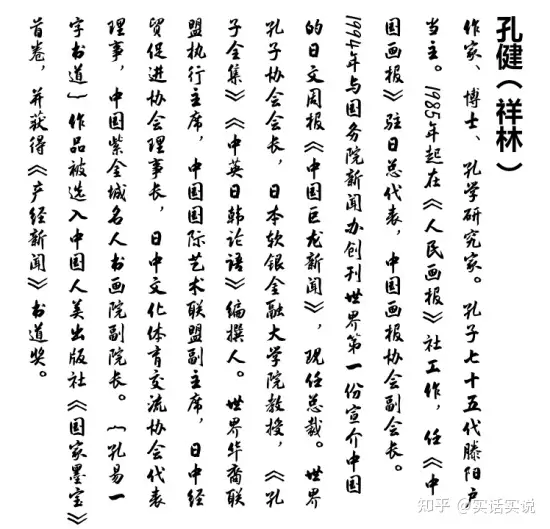 孔健(祥林)
作家、博士、孔学研究家。孔子七十五代滕阳户
当主。1985年起在《人民画报》社工作,任《中
国画报》驻日总代表,中国画报协会副会长。
1994年与国务院新闻办创刊世界第一份宣介中国
的日文周报《中国巨龙新闻》,现任总裁。世界
孔子协会会长,日本软银金融大学院教授,《孔
子全集》《中英日韩论语》编撰人。世界华裔联
盟执行主席,中国国际艺术联盟副主席,日中经
贸促进协会理事长,日中文化体育交流协会代表
理事,中国紫金城名人书画院副院长。(孔易一
字书道)作品被选入中国人美出版社《国家墨宝》
首卷,并获得《产经新闻》书道奖。
知乎 @实话实说